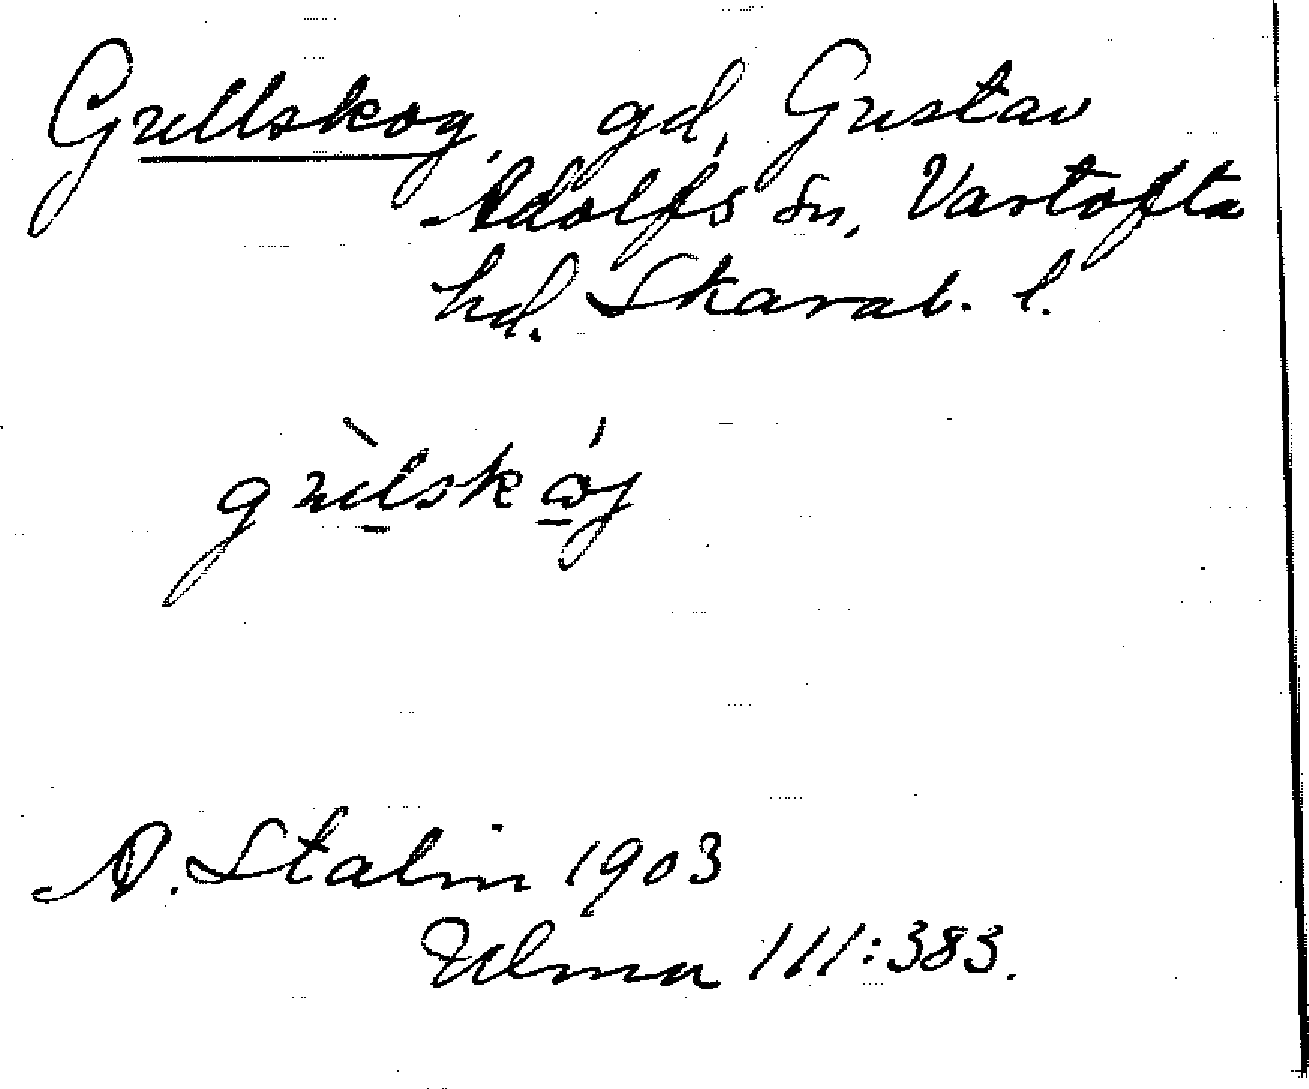 Grellskog, gd, Gustav
Adolfs sn, Vartofta
hd. Skarab. l.
A. Stalin 1903
Ulma 111:383.